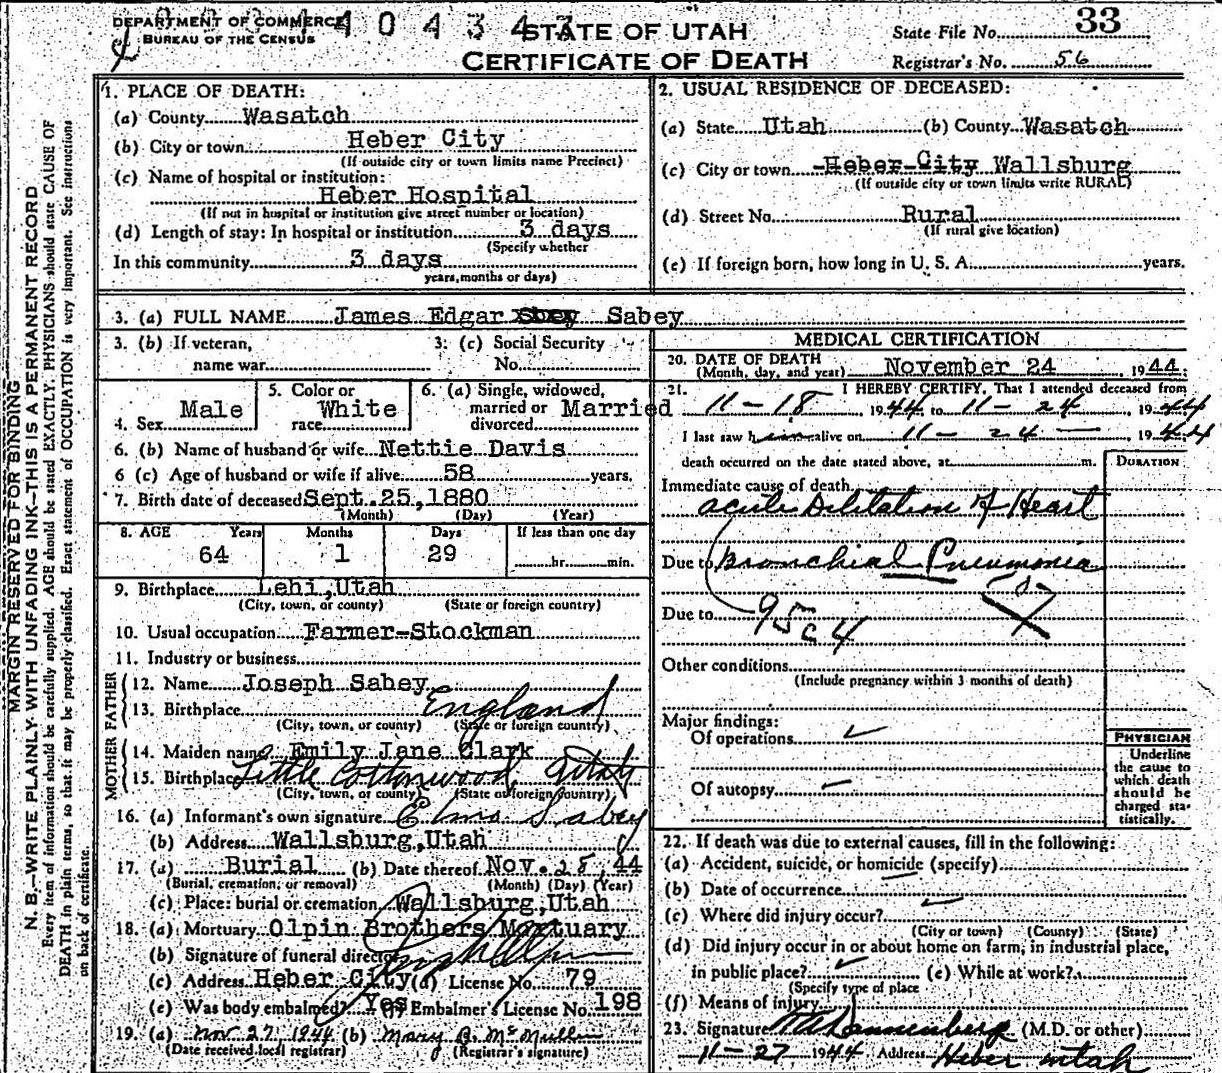 DEPARTMENT OF COMMERCE
BUREAU OF THE CENSUS
4 0 4 3 4 3
STATE OF UTAH
CERTIFICATE OF DEATH
State File No. 33
Registrar's No. 56
MARGIN RESERVED FOR BINDING
N. B.—WRITE PLAINLY WITH UNFADING INK—THIS IS A PERMANENT RECORD
Every item of information should be carefully supplied. AGE should be stated EXACTLY. PHYSICIANS should state CAUSE OF
DEATH in plain terms, so that it may be properly classified. Exact statement of OCCUPATION is very important. See instructions
on back of certificate.
1. PLACE OF DEATH:
(a) County Wasatch
(b) City or town Heber City
(If outside city or town limits name Precinct)
(c) Name of hospital or institution:
Heber Hospital
(If not in hospital or institution give street number or location)
(d) Length of stay: In hospital or institution 3 days
(Specify whether
In this community 3 days
years, months or days)
2. USUAL RESIDENCE OF DECEASED:
(a) State Utah (b) County Wasatch
(c) City or town Heber City Wallsburg
(If outside city or town limits write RURAL)
(d) Street No. Rural
(If rural give location)
(e) If foreign born, how long in U. S. A. years.
3. (a) FULL NAME James Edgar Sabey
3. (b) If veteran,
name war
3. (c) Social Security
No.
4. Sex Male
5. Color or
race White
6. (a) Single, widowed,
married or Married
divorced
6. (b) Name of husband or wife Nettie Davis
6 (c) Age of husband or wife if alive 58 years.
7. Birth date of deceased Sept. 25, 1880
(Month) (Day) (Year)
8. AGE Years Months Days If less than one day
64 1 29 hr. min.
9. Birthplace Lehi, Utah
(City, town, or county) (State or foreign country)
10. Usual occupation Farmer-Stockman
11. Industry or business
FATHER
12. Name Joseph Sabey
13. Birthplace England
(City, town, or county) (State or foreign country)
MOTHER
14. Maiden name Emily Jane Clark
15. Birthplace Little Cottonwood Utah
(City, town, or county) (State or foreign country)
16. (a) Informant's own signature Elmo Sabey
(b) Address Wallsburg, Utah
17. (a) Burial (b) Date thereof Nov. 28, 44
(Burial, cremation, or removal) (Month) (Day) (Year)
(c) Place: burial or cremation Wallsburg, Utah
18. (a) Mortuary Olpin Brothers Mortuary
(b) Signature of funeral director
(c) Address Heber City (d) License No. 79
(e) Was body embalmed? Yes (f) Embalmer's License No. 198
19. (a) Nov 27, 1944 (b) Mary B. McMullin
(Date received local registrar) (Registrar's signature)
MEDICAL CERTIFICATION
20. DATE OF DEATH
(Month, day, and year) November 24, 1944.
21. I HEREBY CERTIFY, That I attended deceased from
11-18, 1944 to 11-24, 1944
I last saw him alive on 11-24-, 1944
death occurred on the date stated above, at m.
DURATION
Immediate cause of death
acute Dilitation of Heart
Due to Bronchial Pneumonia
Due to 95c4
Other conditions
(Include pregnancy within 3 months of death)
Major findings:
Of operations
Of autopsy
PHYSICIAN
Underline
the cause to
which death
should be
charged sta-
tistically.
22. If death was due to external causes, fill in the following:
(a) Accident, suicide, or homicide (specify)
(b) Date of occurrence
(c) Where did injury occur?
(City or town) (County) (State)
(d) Did injury occur in or about home on farm, in industrial place,
in public place? (e) While at work?
(Specify type of place
(f) Means of injury
23. Signature Dannenberg (M.D. or other)
11-27 1944 Address Heber Utah